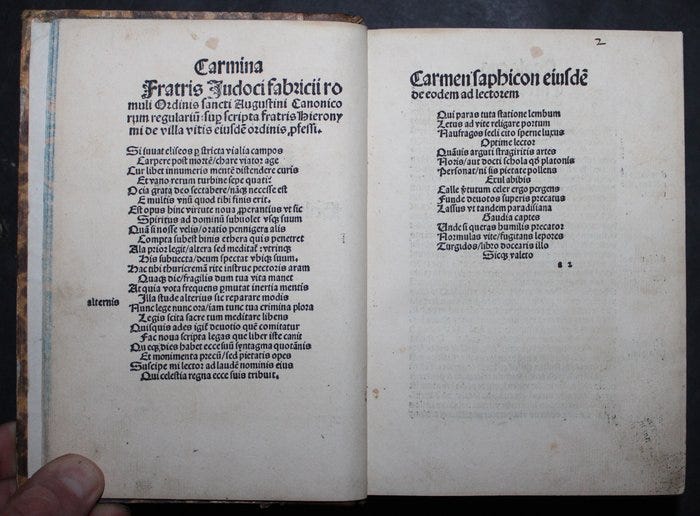 Carmina
Fratris Judoci fabricii ro
muli Ordinis sancti Augustini Canonico
rum regulariū: sup scripta fratris Hierony
mi de villa vitis eiusdē ordinis ꝓfessi.
Si iuuat eliseos ꝑ stricta vialia campos
Carpere post mortē/chare viator age
Cur libet innumeris mentē distendere curis
Et vano rerum turbine sepe quati?
Ocia grata deo sectabere/nāqꝫ necesse est
E multis vnū quod tibi finis erit.
Est opus hinc virtute noua ꝓperantius vt sic
Spiritus ad dominū subuolet vsqꝫ suum
Quā si nosse velis/oratio pennigera alis
Compta subest binis ethera quis penetret
Ala prior legit/altera sed meditat᷑ vtrinqꝫ
His subuecta/deum spectat vbiqꝫ suum.
Hac tibi thuricremā rite instrue pectoris aram
Quaqꝫ die/fragilis dum tua vita manet
At quia vota frequens ꝓmutat inertia mentis
alternis Illa stude alterius sic reparare modis
Nunc lege nunc ora/iam tunc tua crimina plora
Legis scita sacre tum meditare libens
Quisquis ades igit᷑ deuotio quē comitatur
Fac noua scripta legas que liber iste canit
Qu eqꝫ dies habet ecce suū syntagma quotānis
Et monimenta precū/sed pietatis opes
Suscipe mi lector ad laudē nominis eius
Qui celestia regna ecce suis tribuit.
2
Carmen saphicon eiusdē
de eodem ad lectorem
Qui paras tuta statione lembum
Letus ad vite religare portum
Naufragos sedi cito sperne luxus
Optime lector
Quāuis arguti stragiritis artes
Noris/aut docti schola qꝫ platonis
Personat/ni sis pietate pollens
Exul abibis
Calle ꝟtutum celer ergo pergens
Funde deuotos superis precatus
Lassus vt tandem paradisiana
Gaudia captes
Unde si queras humilis precator
Normulas vite/fugitans lepores
Turgidos/libro docearis illo
Sicqꝫ valeto
a 2